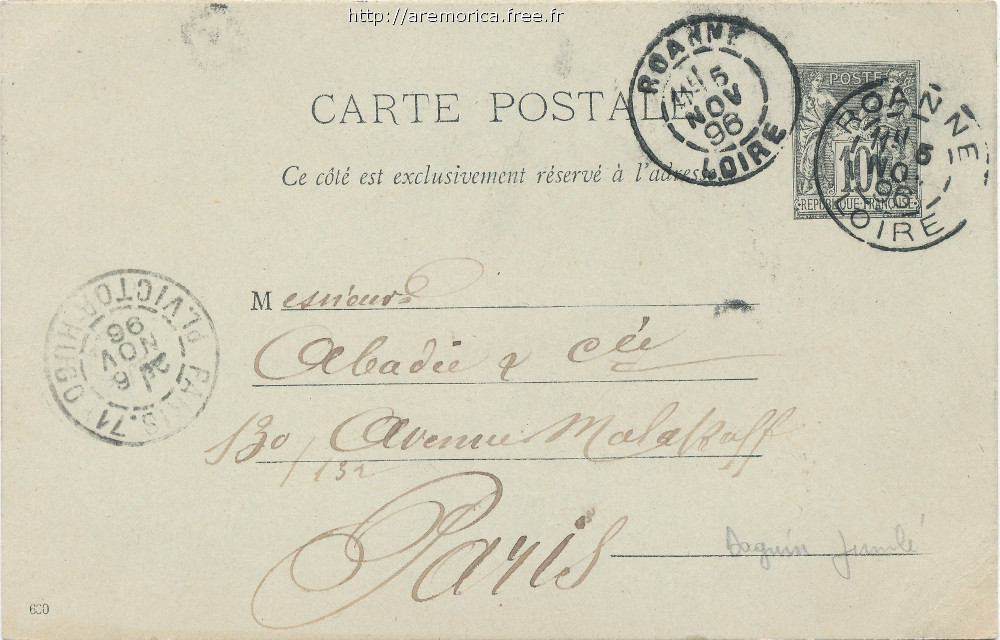 http://aremorica.free.fr
ROANNE
5
NOV
96
LOIRE
POSTE
10
REPUBLIQUE FRANCAISE
ROANNE
5
NOV
96
LOIRE
CARTE POSTALE
Ce côté est exclusivement réservé à l'adresse
PARIS.71 PL.VICTOR-HUGO
6
NOV
96
Messieurs
Abadie & Cie
130/132 Avenue Malakoff
Paris
Daguin jumelé
630